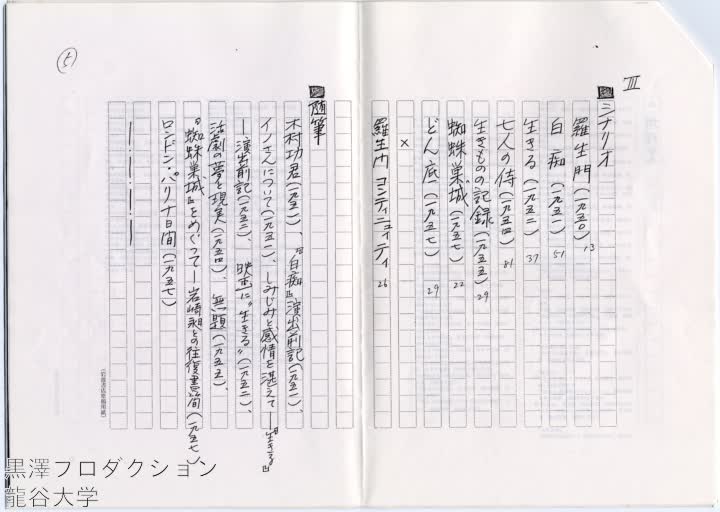 III
シナリオ
羅生門(一九五〇) 13
白痴(一九五一) 51
生きる(一九五二) 37
七人の侍(一九五四) 81
生きものの記録(一九五五) 29
蜘蛛巣城(一九五七) 22
どん底(一九五七) 29
×
羅生門 コンティニュイティ 26
随筆
木村功君(一九五一)、『白痴』演出前記(一九五一)、
イノさんについて(一九五二)、しみじみと感情を湛えて―『生きる』
―演出前記(一九五二)、映画に"生きる"(一九五二)、
活劇の夢と現実(一九五四)、無題(一九五五)、
『蜘蛛巣城』をめぐって―岩崎昶との往復書簡(一九五七)
ロンドン・パリ十日間(一九五七)
(5)
黒澤プロダクション
龍谷大学